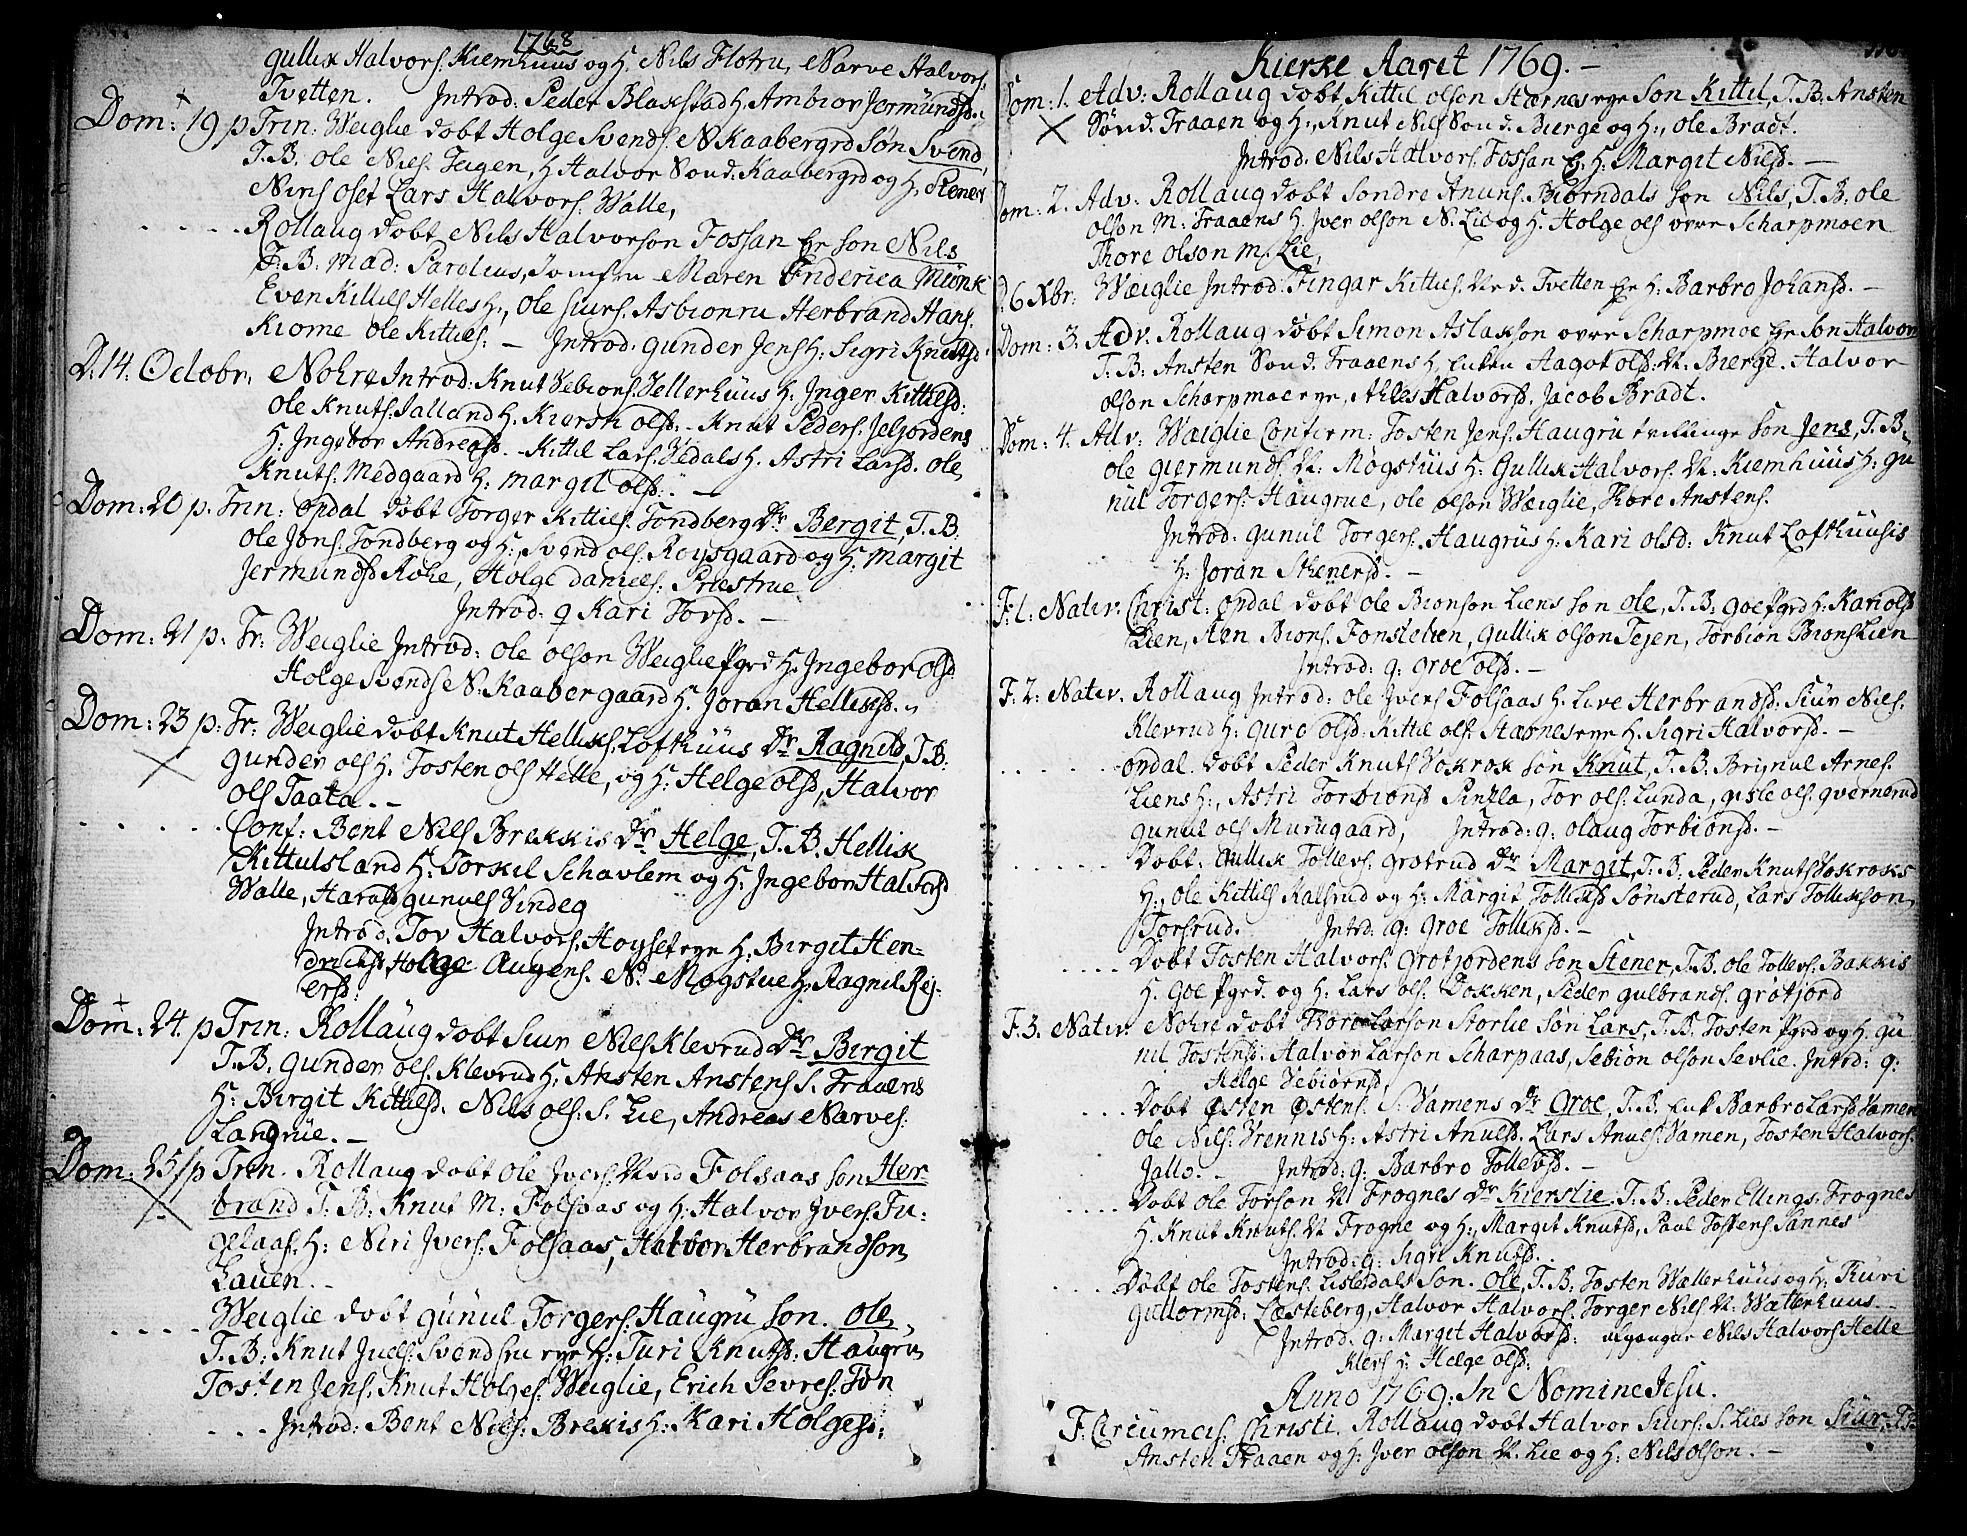 1768
Gullik Halvors: Kiemhuus og H. Nils Flotru, Narve Halvors:
Tvetten. Introd: Peder Blakstad H. Ambior Jermundsd.
Dom: 19 p Trin: Weiglie dobt Holge Svends. N Kaabergrd Søn Svend,
T.B. Ole Niels. Teigen, H Halvor Sønd. Kaabergrd og H. Stener
Niris Oset Lars Halvors. Walle,
Rollaug dobt Nils Halvorson Fossan Er Son Nils
T.B. Mad: Parolius, Jomfru Maren Friderica Münk
Even Kittils Helles H:, Ole Siurs. Asbionru Herbrand Hans.
Kiome Ole Kittils: - Introd: Gunder Jens H: Sigri Knutsd.
D. 14. Octobr: Nohre Introd: Knut Vebiors. Vellerhuus H. Inger Kittilsd:
Ole Knuts. Jalland H. Kiersti olsd. - Knut Peders. Jeljordens
H. Ingebor Andreasd. - Kittil Lars. Vedals H. Astri Larsd. Ole
Knuts. Medgaard H: Margit olsd: -
Dom: 20 p: Trin: Opdal Dobt Torger Kittils. Tondberg Dr Bergit, T.B.
Ole Jons. Tondberg og H:, Svend ols. Roysgaard og H. Margit
Jermundsd Rohe, Holge Daniels: Prestrue
Introd: q Kari Torsd. -
Dom: 21 p. Tr: Weiglie Introd: Ole olson Weiglie Pgrd H. Ingebor olsd
Holge Svends N. Kaabergaard H. Joran Helliksd.
Dom: 23 p: Tr: Weiglie dobt Knut Helliks. Lofthuus Dr Ragnild, T.B:
Gunder ols H. Tosten ols Helle, og H: Helge olsd, Halvor
ols Taata. -
Conf: Bent Nils Brekkis Dr Helge, T.B. Hellik
Kittulsland H. Torkil Schavlem og H. Ingebor Halvorsd
Walle, Harald Gunuls Vindeg
Introd. Tov Halvors. Hoyset eye H. Birgit Hen-
drichsd, Holge Augens. N. Mogstue H. Ragnil Rej-
ersd:
Dom: 24. p Trin: Rollaug dobt Siur Niels Klevrud Dr Birgit
T.B. Gunder ols. Klevrud H. Ansten Anstens S. Fraaens
H. Birgit Kittilsd. Nils ols. S. Lie, Andreas Narves.
Langrue. -
Dom: 25 p Trin. Rollaug dobt Ole Ivers. Folsaas Son Her-
brand T.B. Knut M: Folsaas og H. Halvor Ivers. Tu-
gelaas. H: Niri Ivers. Folsaas, Halvor Herbrandson
Lauen. -
Weiglie dobt Gunul Torgers. Haugru Son. Ole,
T.B. Knut Juels. Svendsru eye H: Turi Knutsd. Haugru
Tosten Jens. Knut Holges. Weiglie, Erich Sevres. Ton
Introd: Bent Niels: Brekis H: Kari Holgesd:
Kierke Aaret 1769. -
Dom: 1. Adv: Rollaug Dobt Kittil Olson Stærnes eye Son Kittil, T.B. Ansten
Sønd. Fraaen og H:, Knut Nils Sønd. Bierge og H:, Ole Bradt.
Introd. Nils Halvors. Fossan Er H. Margit Nielsd. -
Dom: 2. Adv: Rollaug Dobt Sondre Anuns. Biørndals Søn Nils, T.B. Ole
olson M: Fraaens H. Iver olson N. Lie og H. Holge ols øvre Scharpmoen
Thore olson M. Lie,
D. 6 Xbr: Weiglie Introd: Fingar Kittils. Tvetten Er H: Barbro Johansd. -
Dom: 3. Adv. Rollaug dobt Simon Aslakson øvre Scharpmoe Er Søn Halvor
T.B: Ansten Sønd. Fraaens H. Enken Aagot olsd. Bierge. Halvor
olson Scharpmoe eye, Halvorsd. Jacob Bradt.
Dom: 4. Adv: Weiglie Confirm: Tosten Jens. Haugru tvillinge Son Jens, T.B.
Ole Giermunds. N: Mogstuis H: Gullik Halvors. N: Kiemhuus H: Gu-
nul Torgers. Haugrue, Ole olson Weiglie, Thore Anstens.
Introd. Gunul Torgers. Haugrus H: Kari olsd: Knut Lofthuusis
H: Joran Stenersd. -
F: 1. Nativ. Christ: Opdal dobt Ole Bionson Liens Søn Ole, T.B: Goe Pgrd H: Kari olsd
Lien, Sten Bions. Fonstelien, Gullik olson Tejen, Torbion Bions Lien
Introd: q: Groe olsd. -
F: 2: Nativ. Rollaug Introd: Ole Ivers Folsaas H. Live Herbrandsd. Siur Niels.
Klevrud H: Guro olsd. Kittil ols. Stærnes eye H. Sigri Halvorsd. -
Opdal. Dobt Peder Knuts Vokrok Søn Knut, T.B. Brignul Arnes.
Liens H:, Astri Torbionsd Pintla, Tor ols. Lunda, Gisle ols. Qvernerud
Gunul ols Murugaard, Introd: q: Olaug Torbionsd. -
Dobt: Gullik Tollevs. Grotrud Dr Margit, T.B. Peder Knuts Vokroks
H:, Ole Kittils Ralsrud og H: Margit Tolliksd Sønsterud, Lars Tollikson
Torsrud. Introd: q: Groe Tolliksd. -
Dobt Tosten Halvors. Grotjordens Søn Stener, T.B. Ole Tollevs. Bakkis
H. Goe Pgrd. og H: Lars ols. Dokken, Peder Gulbrands. Grotjord
F: 3. Nativ. Nohre dobt Thore Larson Storlie Søn Lars, T.B. Tosten Pgrd og H. Gu-
nil Tostensd. Halvor Larson Scharpaas, Sebion olson Sevlie. Introd: q:
Helge Vebiørnsd,
Dobt Østen Østens. S. Vamens Dr Groe, T.B. Enk Barbro Larsd Vamen
Ole Niels. Vrennis H: Astri Anulsd. Lars Anuls. Vamen, Tosten Halvors.
Jallo. - Introd: q: Barbro Tollevsd. -
Dobt Ole Torson N Frognes Dr Kierstie. T.B. Peder Ellings. Frognes
H. Knut Knuts. N Frogne og H:, Margit Knutsd, Paul Tostens. Sannes
Introd: q: Sigri Knutsd.
Dobt Ole Tostens. Lisledals Søn. Ole, T.B. Tosten Wællerhuus og H: Turi
Gullormsd: Læsteberg, Halvor Halvors. Torger Niels N. Wællerhuus
Introd: q: Marget Halvorsd: Nils Halvors Helle
Klev H: Helge olsd:
Anno 1769: In Nomine Jesu.
F: Circumcis. Christi. Rollaug dobt Halvor Siurs. S. Lies Son Siur, T.B.
Ansten Fraaen og H: Iver olson N. Lie og H: Nils olson. -